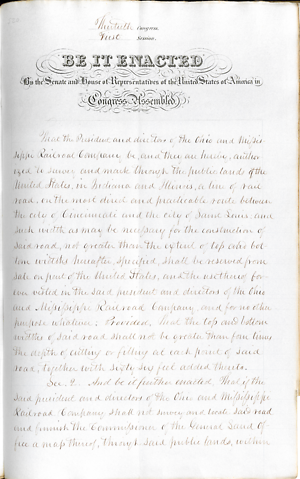 Thirtieth Congress
First Session.
BE IT ENACTED
By the Senate and House of Representatives of the United States of America in
Congress Assembled,
That the President and directors of the Ohio and Missis
sippi Railroad Company be, and they are hereby, author
ized to survey and mark through the public lands of the
United States, in Indiana and Illinois, a line of rail
road, on the most direct and practicable route between
the city of Cincinnati and the city of Saint Louis, and
such width as may be necessary for the construction of
said road, not greater than the extent of top and bot
tom widths hereafter specified, shall be reserved from
sale on part of the United States, and the use thereof for
ever vested in the said president and directors of the Ohio
and Mississippi Railroad Company, and for no other
purpose whatever: Provided, That the top and bottom
widths of said road shall not be greater than four times
the depth of cutting or filling at each part of said
road, together with sixty six feet added thereto.
Sec. 2. And be it further enacted, That if the
said president and directors of the Ohio and Mississippi
Railroad Company shall not survey and locate said road
and furnish the Commissioner of the General Land Of
fice a map thereof, through said public lands, within